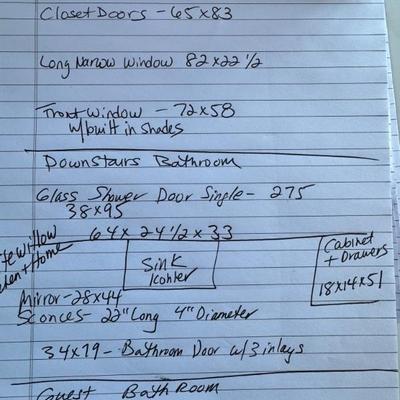 Closet Doors - 65x83
Long Narrow Window 82x22 1/2
Front Window - 72x58
w/built in shades
Downstairs Bathroom
Glass Shower Door Single - 275
38x95
64x 24 1/2 x 33
Sink
Kohler
Cabinet
+ Drawers
18x14x51
Mirror - 28x44
Sconces - 22" Long 4" Diameter
34x79 - Bathroom Door w/3 inlays
Guest BathRoom